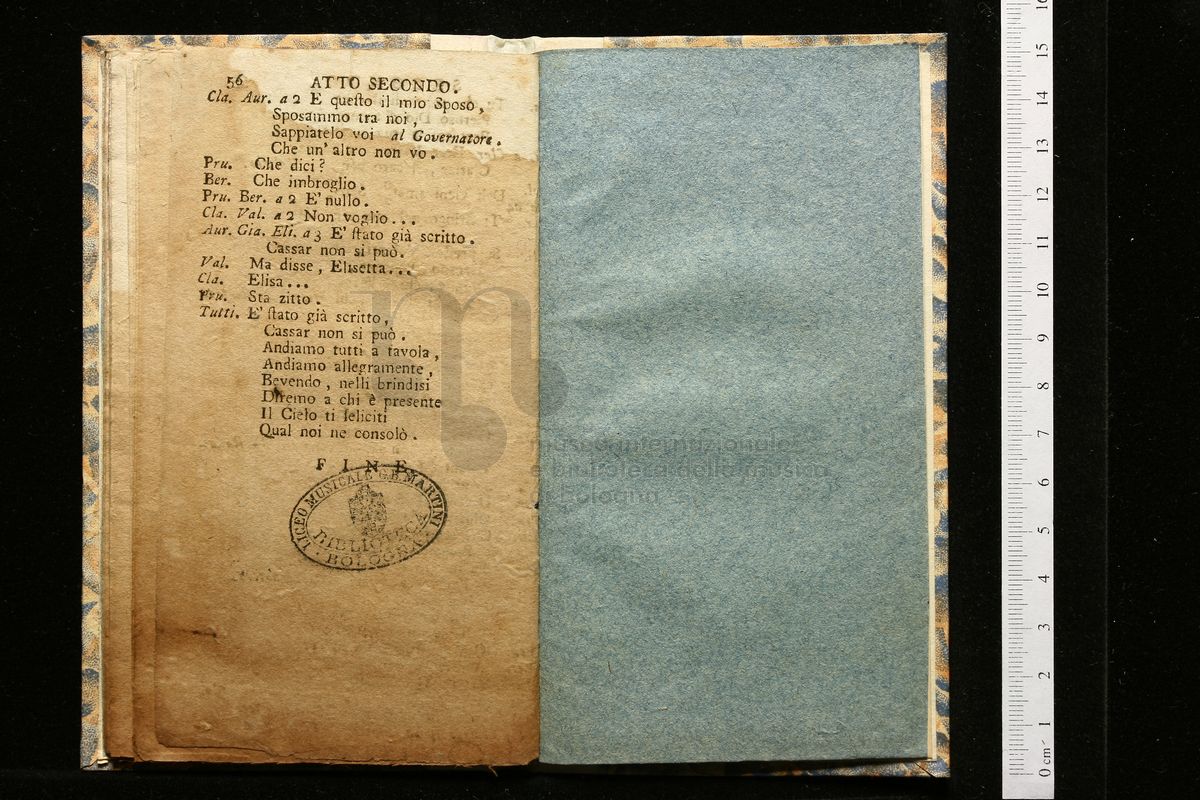 56 ATTO SECONDO.
Cla. Aur. a 2 E queſto il mio Sposo,
Sposammo tra noi,
Sappiatelo voi al Governatore.
Che un' altro non vo.
Pru. Che dici?
Ber. Che imbroglio.
Pru. Ber. a 2 E' nullo.
Cla. Val. a 2 Non voglio...
Aur. Gia. Eli. a 3 E' ſtato già scritto.
Cassar non si può.
Val. Ma disse, Elisetta...
Cla. Elisa...
Pru. Sta zitto.
Tutti. E' ſtato già scritto,
Cassar non si può.
Andiamo tutti a tavola,
Andiamo allegramente,
Bevendo, nelli brindisi
Diremo a chi è presente
Il Cielo ti feliciti
Qual noi ne consolò.
FINE
LICEO MUSICALE G.B. MARTINI
BIBLIOTECA
BOLOGNA
museo internazionale
e biblioteca della musica
di bologna
0 cm 1 2 3 4 5 6 7 8 9 10 11 12 13 14 15 16